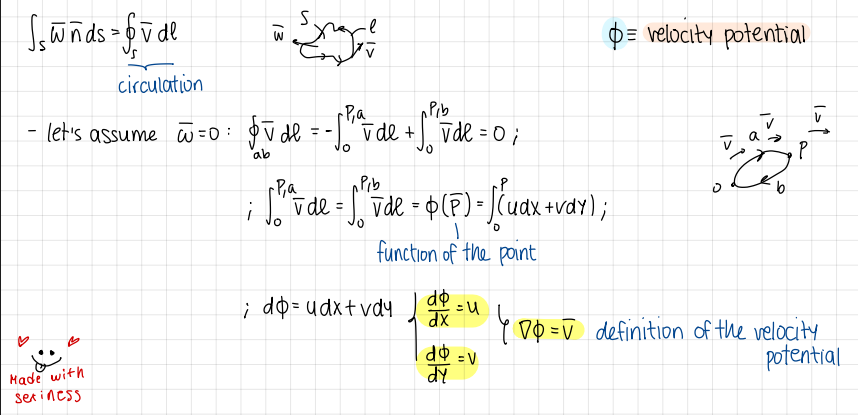 ∫_S w̄ n̄ ds = ∮_S v̄ dℓ
circulation
w̄ S ℓ v̄
ϕ ≡ velocity potential
- let's assume w̄=0 : ∮_ab v̄ dℓ = -∫_0^{P,a} v̄ dℓ + ∫_0^{P,b} v̄ dℓ = 0 ;
v̄ a v̄ v̄ P o b
; ∫_0^{P,a} v̄ dℓ = ∫_0^{P,b} v̄ dℓ = ϕ(P̄) = ∫_0^P (udx + vdy) ;
function of the point
; dϕ = udx + vdy { dϕ/dx = u
dϕ/dy = v
∇ϕ = v̄ definition of the velocity
potential
Made with
sexiness